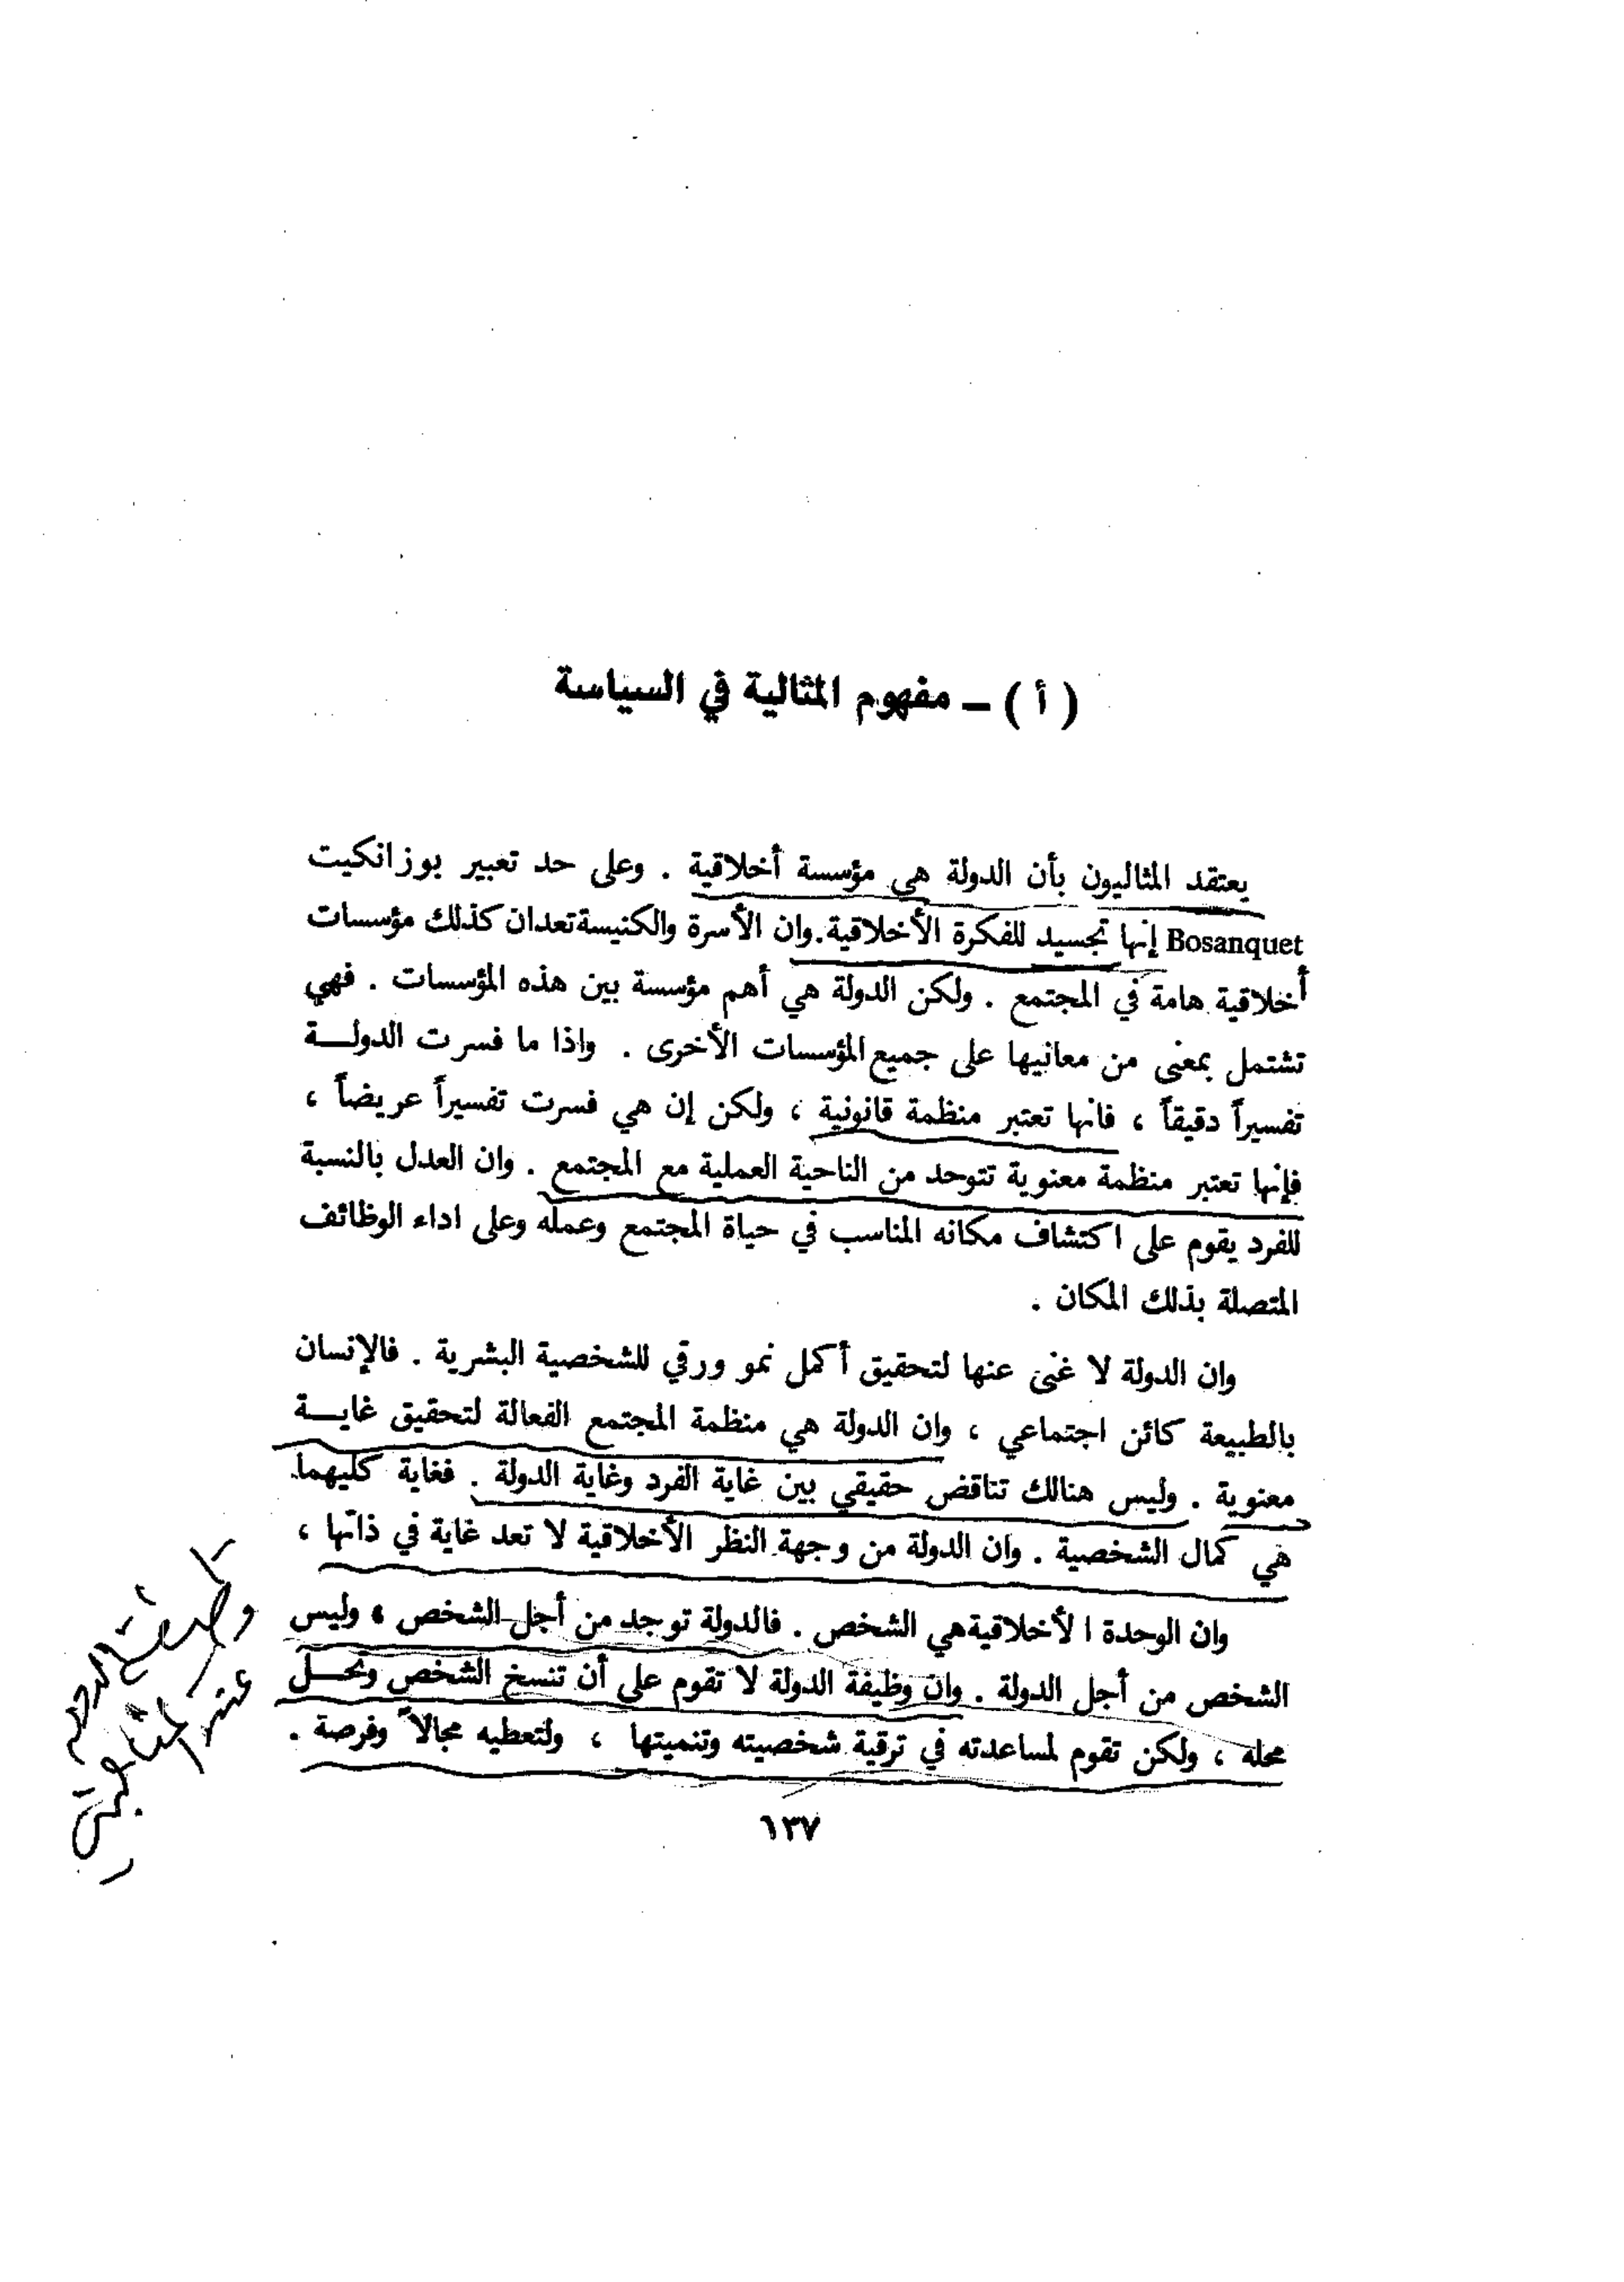 ( أ ) ـ مفهوم المثالية في السياسة
يعتقد المثاليون بأن الدولة هي مؤسسة أخلاقية . وعلى حد تعبير بوزانكيت
Bosanquet إنها تجسيد للفكرة الأخلاقية.وان الأسرة والكنيسة تعدان كذلك مؤسسات
أخلاقية هامة في المجتمع . ولكن الدولة هي أهم مؤسسة بين هذه المؤسسات . فهي
تشتمل بمعنى من معانيها على جميع المؤسسات الأخرى . واذا ما فسرت الدولــة
تفسيراً دقيقاً ، فانها تعتبر منظمة قانونية ، ولكن إن هي فسرت تفسيراً عريضاً ،
فإنها تعتبر منظمة معنوية تتوحد من الناحية العملية مع المجتمع . وان العدل بالنسبة
للفرد يقوم على اكتشاف مكانه المناسب في حياة المجتمع وعمله وعلى اداء الوظائف
المتصلة بذلك المكان .
وان الدولة لا غنى عنها لتحقيق أكمل نمو ورقي للشخصية البشرية . فالإنسان
بالطبيعة كائن اجتماعي ، وان الدولة هي منظمة المجتمع الفعالة لتحقيق غايــة
معنوية . وليس هنالك تناقض حقيقي بين غاية الفرد وغاية الدولة . فغاية كليهما
هي كمال الشخصية . وان الدولة من وجهة النظر الأخلاقية لا تعد غاية في ذاتها ،
وان الوحدة الأخلاقية هي الشخص . فالدولة توجد من أجل الشخص ، وليس
الشخص من أجل الدولة . وان وظيفة الدولة لا تقوم على أن تنسخ الشخص وتحــل
محله ، ولكن تقوم لمساعدته في ترقية شخصيته وتنميتها ، ولتعطيه مجالاً وفرصة .
١٣٧